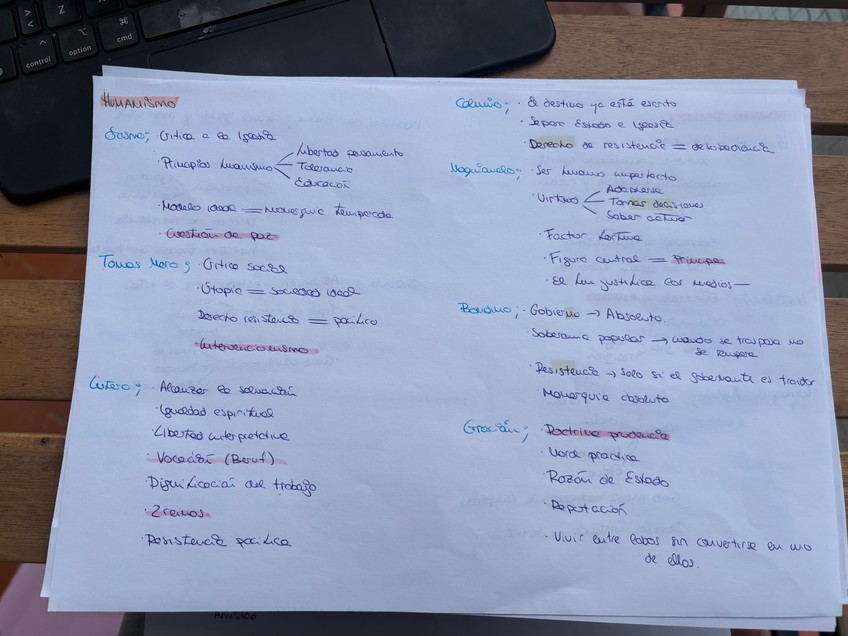 Z
control
option
⌘
cmd
HUMANISMO
Erasmo; Crítica a la Iglesia
· Principios humanismo
Libertad pensamiento
Tolerancia
Educación
· Modelo ideal = Monarquía temperada
· Cuestión de paz
Tomas Moro; · Crítica social
· Utopía = sociedad ideal
Derecho resistencia = pacífico
Intervencionismo
Lutero; · Alcanzar la salvación
· Igualdad espiritual
· Libertad interpretativa
· Vocación (Beruf)
· Dignificación del trabajo
· 2 reinos
· Resistencia pacífica
Calvino; · El destino ya está escrito
· Separo Estado e Iglesia
· Derecho de resistencia = desobediencia
Maquiavelo; · Ser humano imperfecto
· Virtud
Adaptarse
Tomar decisiones
Saber actuar
· Factor fortuna
· Figura central = Príncipe
· El fin justifica los medios —
Bodino; · Gobierno → Absoluto.
· Soberanía popular → cuando se traspasa no
se recupera
· Resistencia → solo si el gobernante es traidor
· Monarquía absoluta
Gracián; · Doctrina prudencia
· Moral práctica
· Razón de Estado
· Reputación
· Vivir entre lobos sin convertirse en uno
de ellos.
Amistad